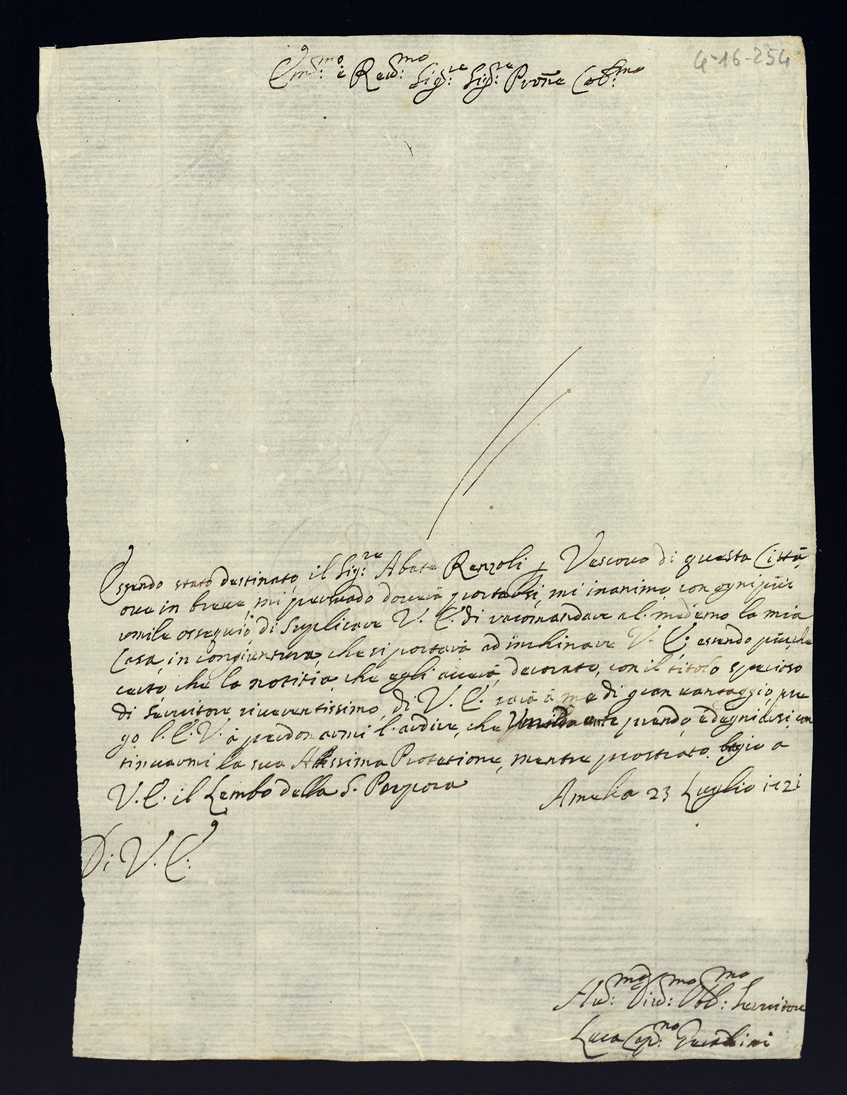 4-16-254
Em.mo e Rev.mo Sig.re Sig.re Prone Col.mo
Essendo stato destinato il Sig.re Abate Renzoli p Vescovo di questa Città,
ove in breve, mi persuado doverà portarsi, mi inanimo, con ogni più
umile ossequio, di Suplicare V. E. di racomandare al medemo la mia
Casa, in congiuntura, che si porterà ad inchinare V. E. essendo più, che
certo, che la notitia, che egli averà, decorato, con il titolo specioso
di Servitore riverentissimo, di V. E. sarà à me di gran vantaggio, pre
go l'E. V. à perdonarmi l'ardire, che Umilmente prendo, e degnidosi, con
tinuarmi la sua Altissima Protetione, mentre prostrato bagio a
V. E. il Lembo della S. Porpora Amelia 23 Luglio 1721
Di V. E.
Hu.mo Div.mo Obb.mo Servitore
Luca Cap.no